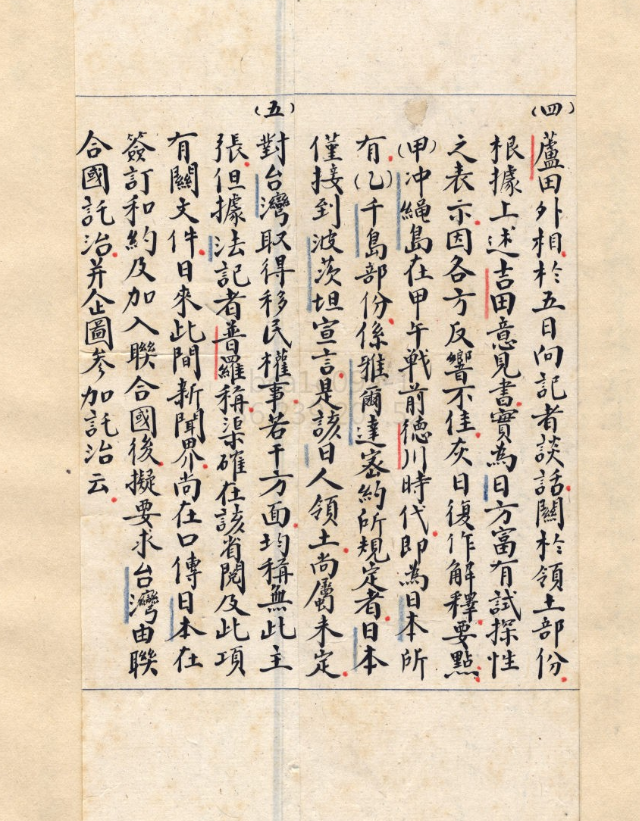 (四)
蘆田外相於五日向記者談話關於領土部份
根據上述吉田意見書實為日方富有試探性
之表示因各方反響不佳灰日復作解釋要點
(甲)冲繩島在甲午戰前德川時代即為日本所
有(乙)千島部份係雅爾達密約所規定者日本
僅接到波茨坦宣言是該日人領土尚屬未定
(五)
對台灣取得移民權事若干方面均稱無此主
張但據法記者普羅稱渠確在該省閱及此項
有關文件日來此間新聞界尚在口傳日本在
簽訂和約及加入聯合國後擬要求台灣由聯
合國託治并企圖參加託治云